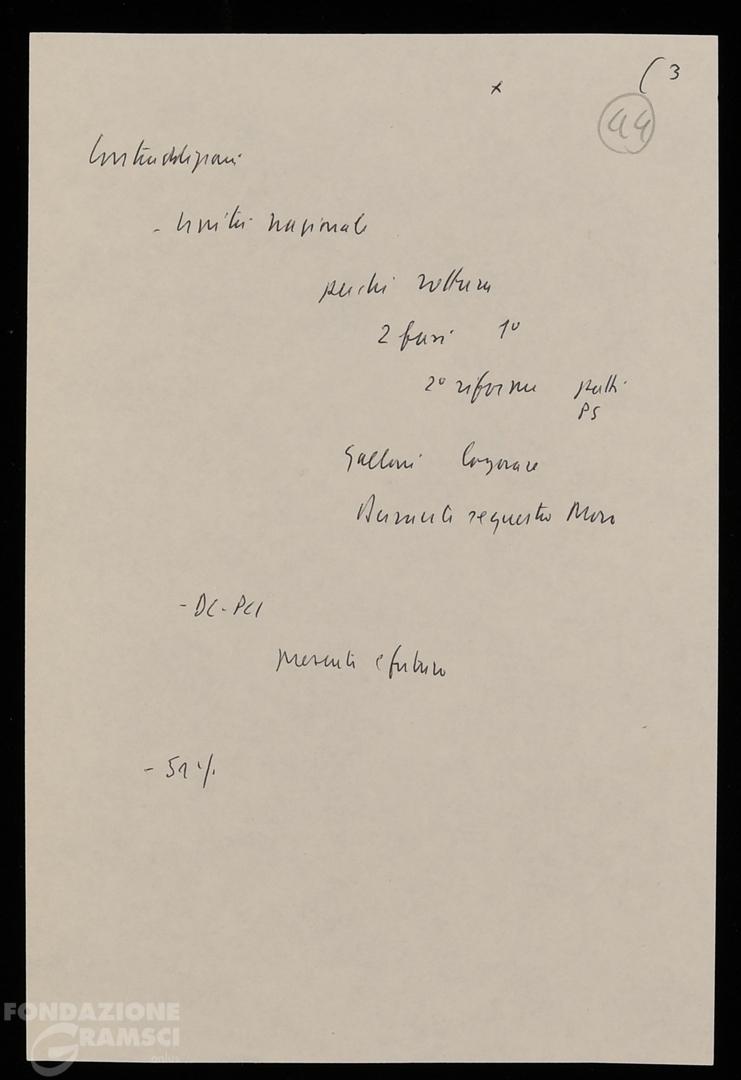 x
( 3
44
Contraddizioni
- Unità nazionale
perché rottura
2 fasi 1°
2° riforme patti
PS
Galloni
sequestro Moro
- DC - PCI
presenti e futuro
- 51 %
FONDAZIONE
GRAMSCI
onlus